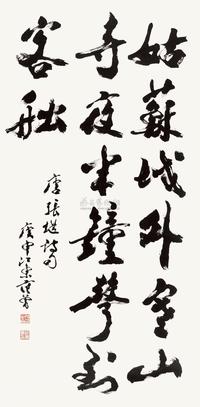 姑蘇城外寒山
寺夜半鐘聲到
客船
唐張繼詩句
庚申江東范曾